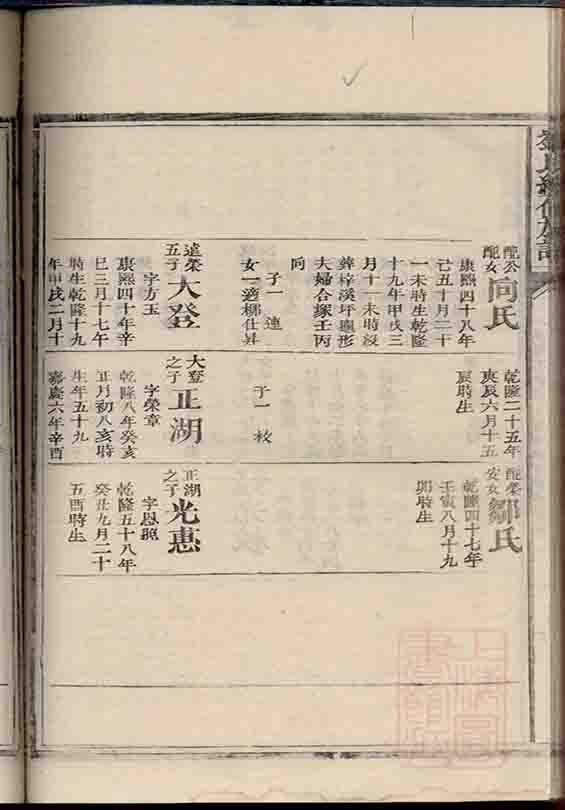 氏續修族譜
配公
配女
向氏
康熙四十八年
己丑十月二十
一未時生乾隆
十九年甲戌三
月十一未時沒
葬梓溪坪虎形
夫婦合塚壬丙
向
子一 連
女一適柳仕昇
遠榮
五子
大登
字方玉
康熙四十年辛
巳三月十七午
時生乾隆十九
年甲戌二月十
乾隆二十五年
庚辰六月十五
辰時生
子一 枚
大登
之子
正湖
字榮章
乾隆八年癸亥
正月初八亥時
生年五十九
嘉慶六年辛酉
配榮
安女
鄒氏
乾隆四十七年
壬寅八月十九
卯時生
正湖
之子
光惠
字恩照
乾隆五十八年
癸丑九月二十
五酉時生
上海圖
書館藏